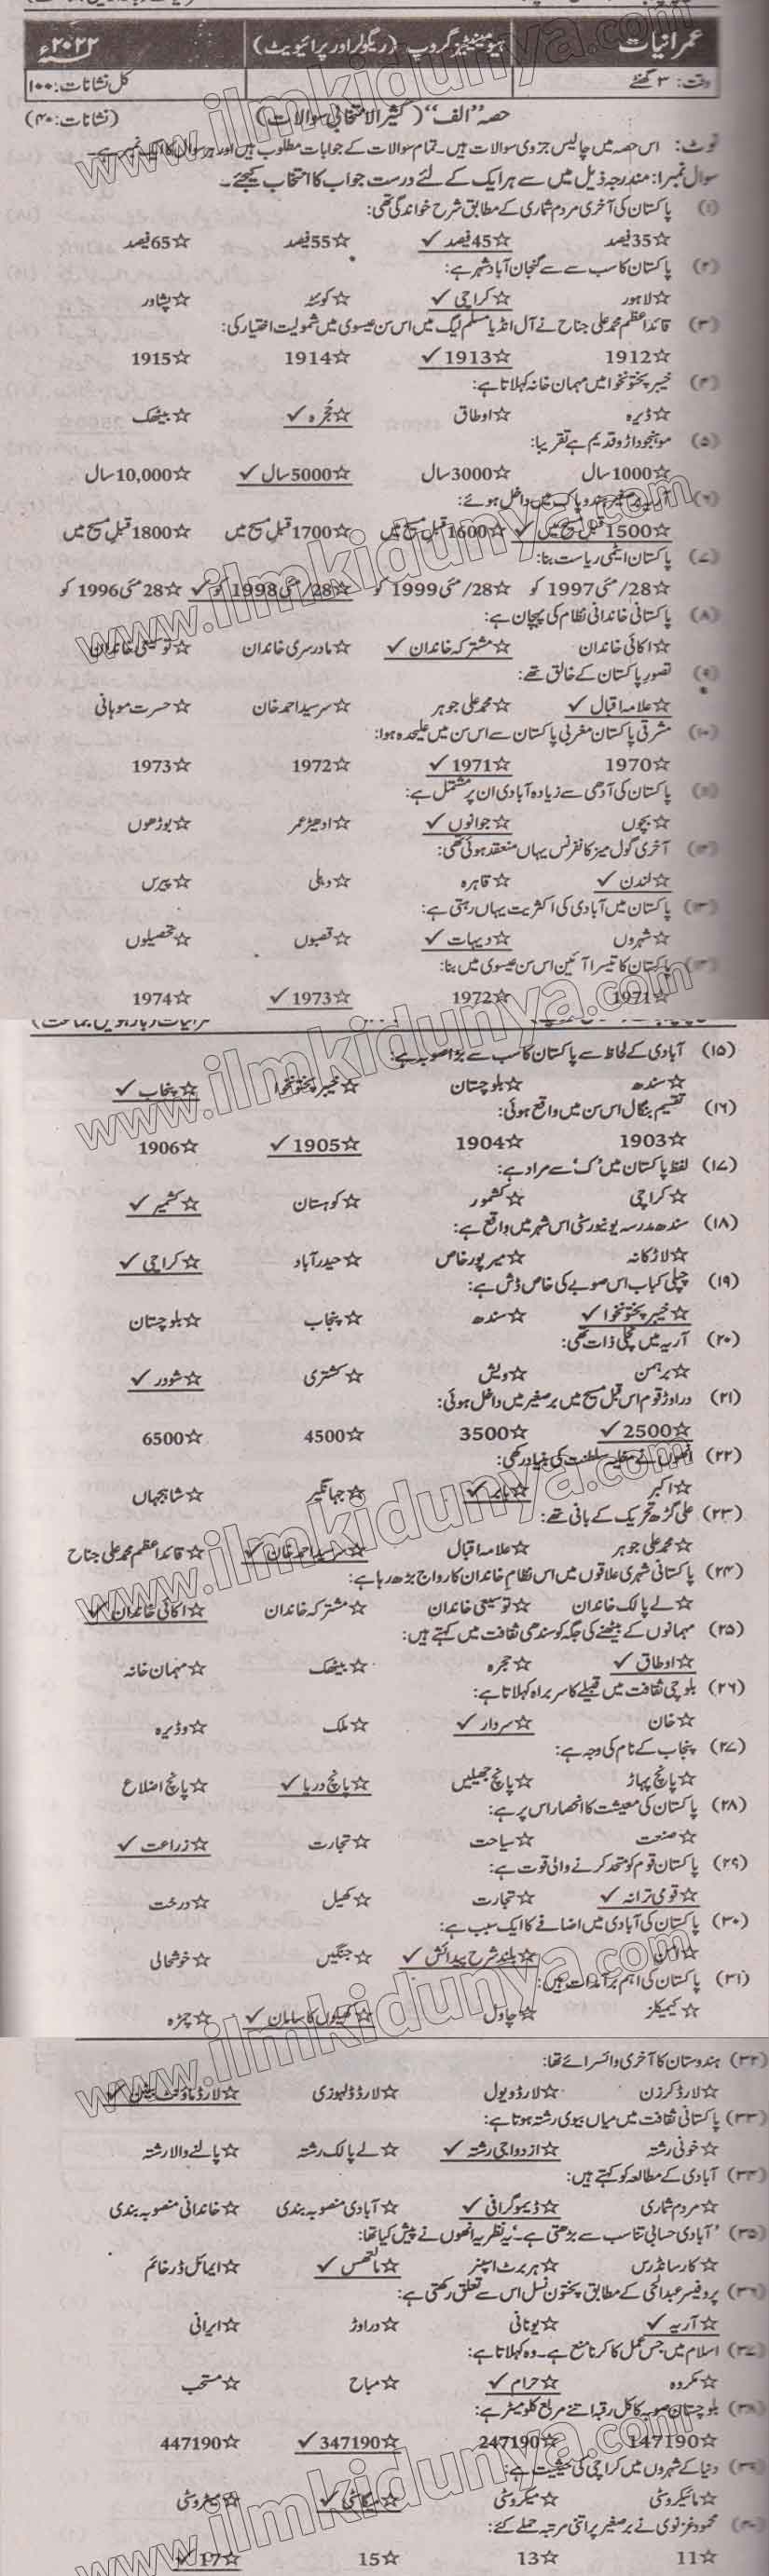 عمرانیات ہیومینیٹیز گروپ (ریگولر اور پرائیویٹ) ۲۰۲۲ء
وقت: ۳ گھنٹے کل نشانات: ۱۰۰
حصہ "الف" (کثیر الانتخابی سوالات) (نشانات: ۴۰)
نوٹ: اس حصہ میں چالیس جزوی سوالات ہیں۔ تمام سوالات کے جوابات مطلوب ہیں اور ہر سوال کا ایک نمبر ہے۔
سوال نمبر۱: مندرجہ ذیل میں سے ہر ایک کے لئے درست جواب کا انتخاب کیجئے۔
(۱) پاکستان کی آخری مردم شماری کے مطابق شرح خواندگی تھی:
☆35فیصد ☆45فیصد ✓ ☆55فیصد ☆65فیصد
(۲) پاکستان کا سب سے سے گنجان آباد شہر ہے:
☆لاہور ☆کراچی ✓ ☆کوئٹہ ☆پشاور
(۳) قائداعظم محمد علی جناح نے آل انڈیا مسلم لیگ میں اس سن عیسوی میں شمولیت اختیار کی:
☆1912 ☆1913 ✓ ☆1914 ☆1915
(۴) خیبر پختونخوا میں مہمان خانہ کہلاتا ہے:
☆ڈیرہ ☆اوطاق ☆حُجرہ ✓ ☆بیٹھک
(۵) موہنجوداڑو قدیم ہے تقریبا:
☆1000سال ☆3000سال ☆5000سال ✓ ☆10,000سال
(۶) آریہ برصغیر ہندوپاک میں داخل ہوئے:
☆1500قبل مسیح میں ✓ ☆1600قبل مسیح میں ☆1700قبل مسیح میں ☆1800قبل مسیح میں
(۷) پاکستان ایٹمی ریاست بنا:
☆28/مئی 1997 کو ☆28/مئی 1999 کو ☆28/مئی 1998 کو ✓ ☆28مئی 1996 کو
(۸) پاکستانی خاندانی نظام کی پہچان ہے:
☆اکائی خاندان ☆مشترکہ خاندان ✓ ☆مادرسری خاندان ☆توسیعی خاندان
(۹) تصور پاکستان کے خالق تھے:
☆علامہ اقبال ✓ ☆محمد علی جوہر ☆سرسید احمد خان ☆حسرت موہانی
(۱۰) مشرقی پاکستان مغربی پاکستان سے اس سن میں علیحدہ ہوا:
☆1970 ☆1971 ✓ ☆1972 ☆1973
(۱۱) پاکستان کی آدھی سے زیادہ آبادی ان پر مشتمل ہے:
☆بچوں ☆جوانوں ✓ ☆ادھیڑ عمر ☆بوڑھوں
(۱۲) آخری گول میز کانفرنس یہاں منعقد ہوئی تھی:
☆لندن ✓ ☆قاہرہ ☆دہلی ☆پیرس
(۱۳) پاکستان میں آبادی کی اکثریت یہاں رہتی ہے:
☆شہروں ☆دیہات ✓ ☆قصبوں ☆تحصیلوں
(۱۴) پاکستان کا تیسرا آئین اس سن عیسوی میں بنا:
☆1971 ☆1972 ☆1973 ✓ ☆1974
(۱۵) آبادی کے لحاظ سے پاکستان کا سب سے بڑا صوبہ ہے:
☆سندھ ☆بلوچستان ☆خیبر پختونخوا ☆پنجاب ✓
(۱۶) تقسیم بنگال اس سن میں واقع ہوئی:
☆1903 ☆1904 ☆1905 ✓ ☆1906
(۱۷) لفظ پاکستان میں 'ک' سے مراد ہے:
☆کراچی ☆کشمور ☆کوہستان ☆کشمیر ✓
(۱۸) سندھ مدرسہ یونیورسٹی اس شہر میں واقع ہے:
☆لاڑکانہ ☆میرپور خاص ☆حیدرآباد ☆کراچی ✓
(۱۹) چپلی کباب اس صوبے کی خاص ڈش ہے:
☆خیبر پختونخوا ✓ ☆سندھ ☆پنجاب ☆بلوچستان
(۲۰) آریہ میں نچلی ذات تھی:
☆برہمن ☆ویش ☆کشتری ☆شودر ✓
(۲۱) دراوڑ قوم اس قبل مسیح میں برصغیر میں داخل ہوئی:
☆2500 ✓ ☆3500 ☆4500 ☆6500
(۲۲) انھوں نے مغلیہ سلطنت کی بنیاد رکھی:
☆اکبر ☆بابر ✓ ☆جہانگیر ☆شاہجہاں
(۲۳) علی گڑھ تحریک کے بانی تھے:
☆محمد علی جوہر ☆علامہ اقبال ☆سرسید احمد خان ✓ ☆قائداعظم محمد علی جناح
(۲۴) پاکستانی شہری علاقوں میں اس نظام خاندان کا رواج بڑھ رہا ہے:
☆لے پالک خاندان ☆توسیعی خاندان ☆مشترکہ خاندان ☆اکائی خاندان ✓
(۲۵) مہمانوں کے بیٹھنے کی جگہ کو سندھی ثقافت میں کہتے ہیں:
☆اوطاق ✓ ☆حجرہ ☆بیٹھک ☆مہمان خانہ
(۲۶) بلوچی ثقافت میں قبیلے کا سربراہ کہلاتا ہے:
☆خان ☆سردار ✓ ☆ملک ☆وڈیرہ
(۲۷) پنجاب کے نام کی وجہ ہے:
☆پانچ پہاڑ ☆پانچ جھیلیں ☆پانچ دریا ✓ ☆پانچ اضلاع
(۲۸) پاکستان کی معیشت کا انحصار اس پر ہے:
☆صنعت ☆سیاحت ☆تجارت ☆زراعت ✓
(۲۹) پاکستان قوم کو متحد کرنے والی قوت ہے:
☆قومی ترانہ ✓ ☆تجارت ☆کھیل ☆درخت
(۳۰) پاکستان کی آبادی میں اضافے کا ایک سبب ہے:
☆امن ☆بلند شرح پیدائش ✓ ☆جنگیں ☆خوشحالی
(۳۱) پاکستان کی اہم برآمدات ہیں:
☆کیمیکلز ☆چاول ☆کھیلوں کا سامان ✓ ☆چمڑہ
(۳۲) ہندوستان کا آخری وائسرائے تھا:
☆لارڈ کرزن ☆لارڈ ویول ☆لارڈ ڈلہوزی ☆لارڈ ماؤنٹ بیٹن ✓
(۳۳) پاکستانی ثقافت میں میاں بیوی رشتہ ہوتا ہے:
☆خونی رشتہ ☆ازدواجی رشتہ ✓ ☆لے پالک رشتہ ☆پالنے والا رشتہ
(۳۴) آبادی کے مطالعہ کو کہتے ہیں:
☆مردم شماری ☆ڈیموگرافی ✓ ☆آبادی منصوبہ بندی ☆خاندانی منصوبہ بندی
(۳۵) 'آبادی حسابی تناسب سے بڑھتی ہے۔' یہ نظریہ انھوں نے پیش کیا تھا:
☆کارسانڈرس ☆ہربرٹ اسپنر ☆مالتھس ✓ ☆ایمائل ڈرخائم
(۳۶) پروفیسر عبدالحی کے مطابق پختون نسل اس سے تعلق رکھتی ہے:
☆آریہ ✓ ☆یونانی ☆دراوڑ ☆ایرانی
(۳۷) اسلام میں جس عمل کا کرنا منع ہے۔ وہ کہلاتا ہے:
☆مکروہ ☆حرام ✓ ☆مباح ☆مستحب
(۳۸) بلوچستان صوبہ کا کل رقبہ اتنے مربع کلومیٹر ہے:
☆147190 ☆247190 ☆347190 ✓ ☆447190
(۳۹) دنیا کے شہروں میں کراچی کی حیثیت ہے:
☆مائیکروسٹی ☆میکروسٹی ☆میگاسٹی ✓ ☆میٹروسٹی
(۴۰) محمود غزنوی نے برصغیر پر اتنی مرتبہ حملے کئے:
☆11 ☆13 ☆15 ☆17 ✓
www.ilmkidunya.com
www.ilmkidunya.com
www.ilmkidunya.com
www.ilmkidunya.com
www.ilmkidunya.com
www.ilmkidunya.com